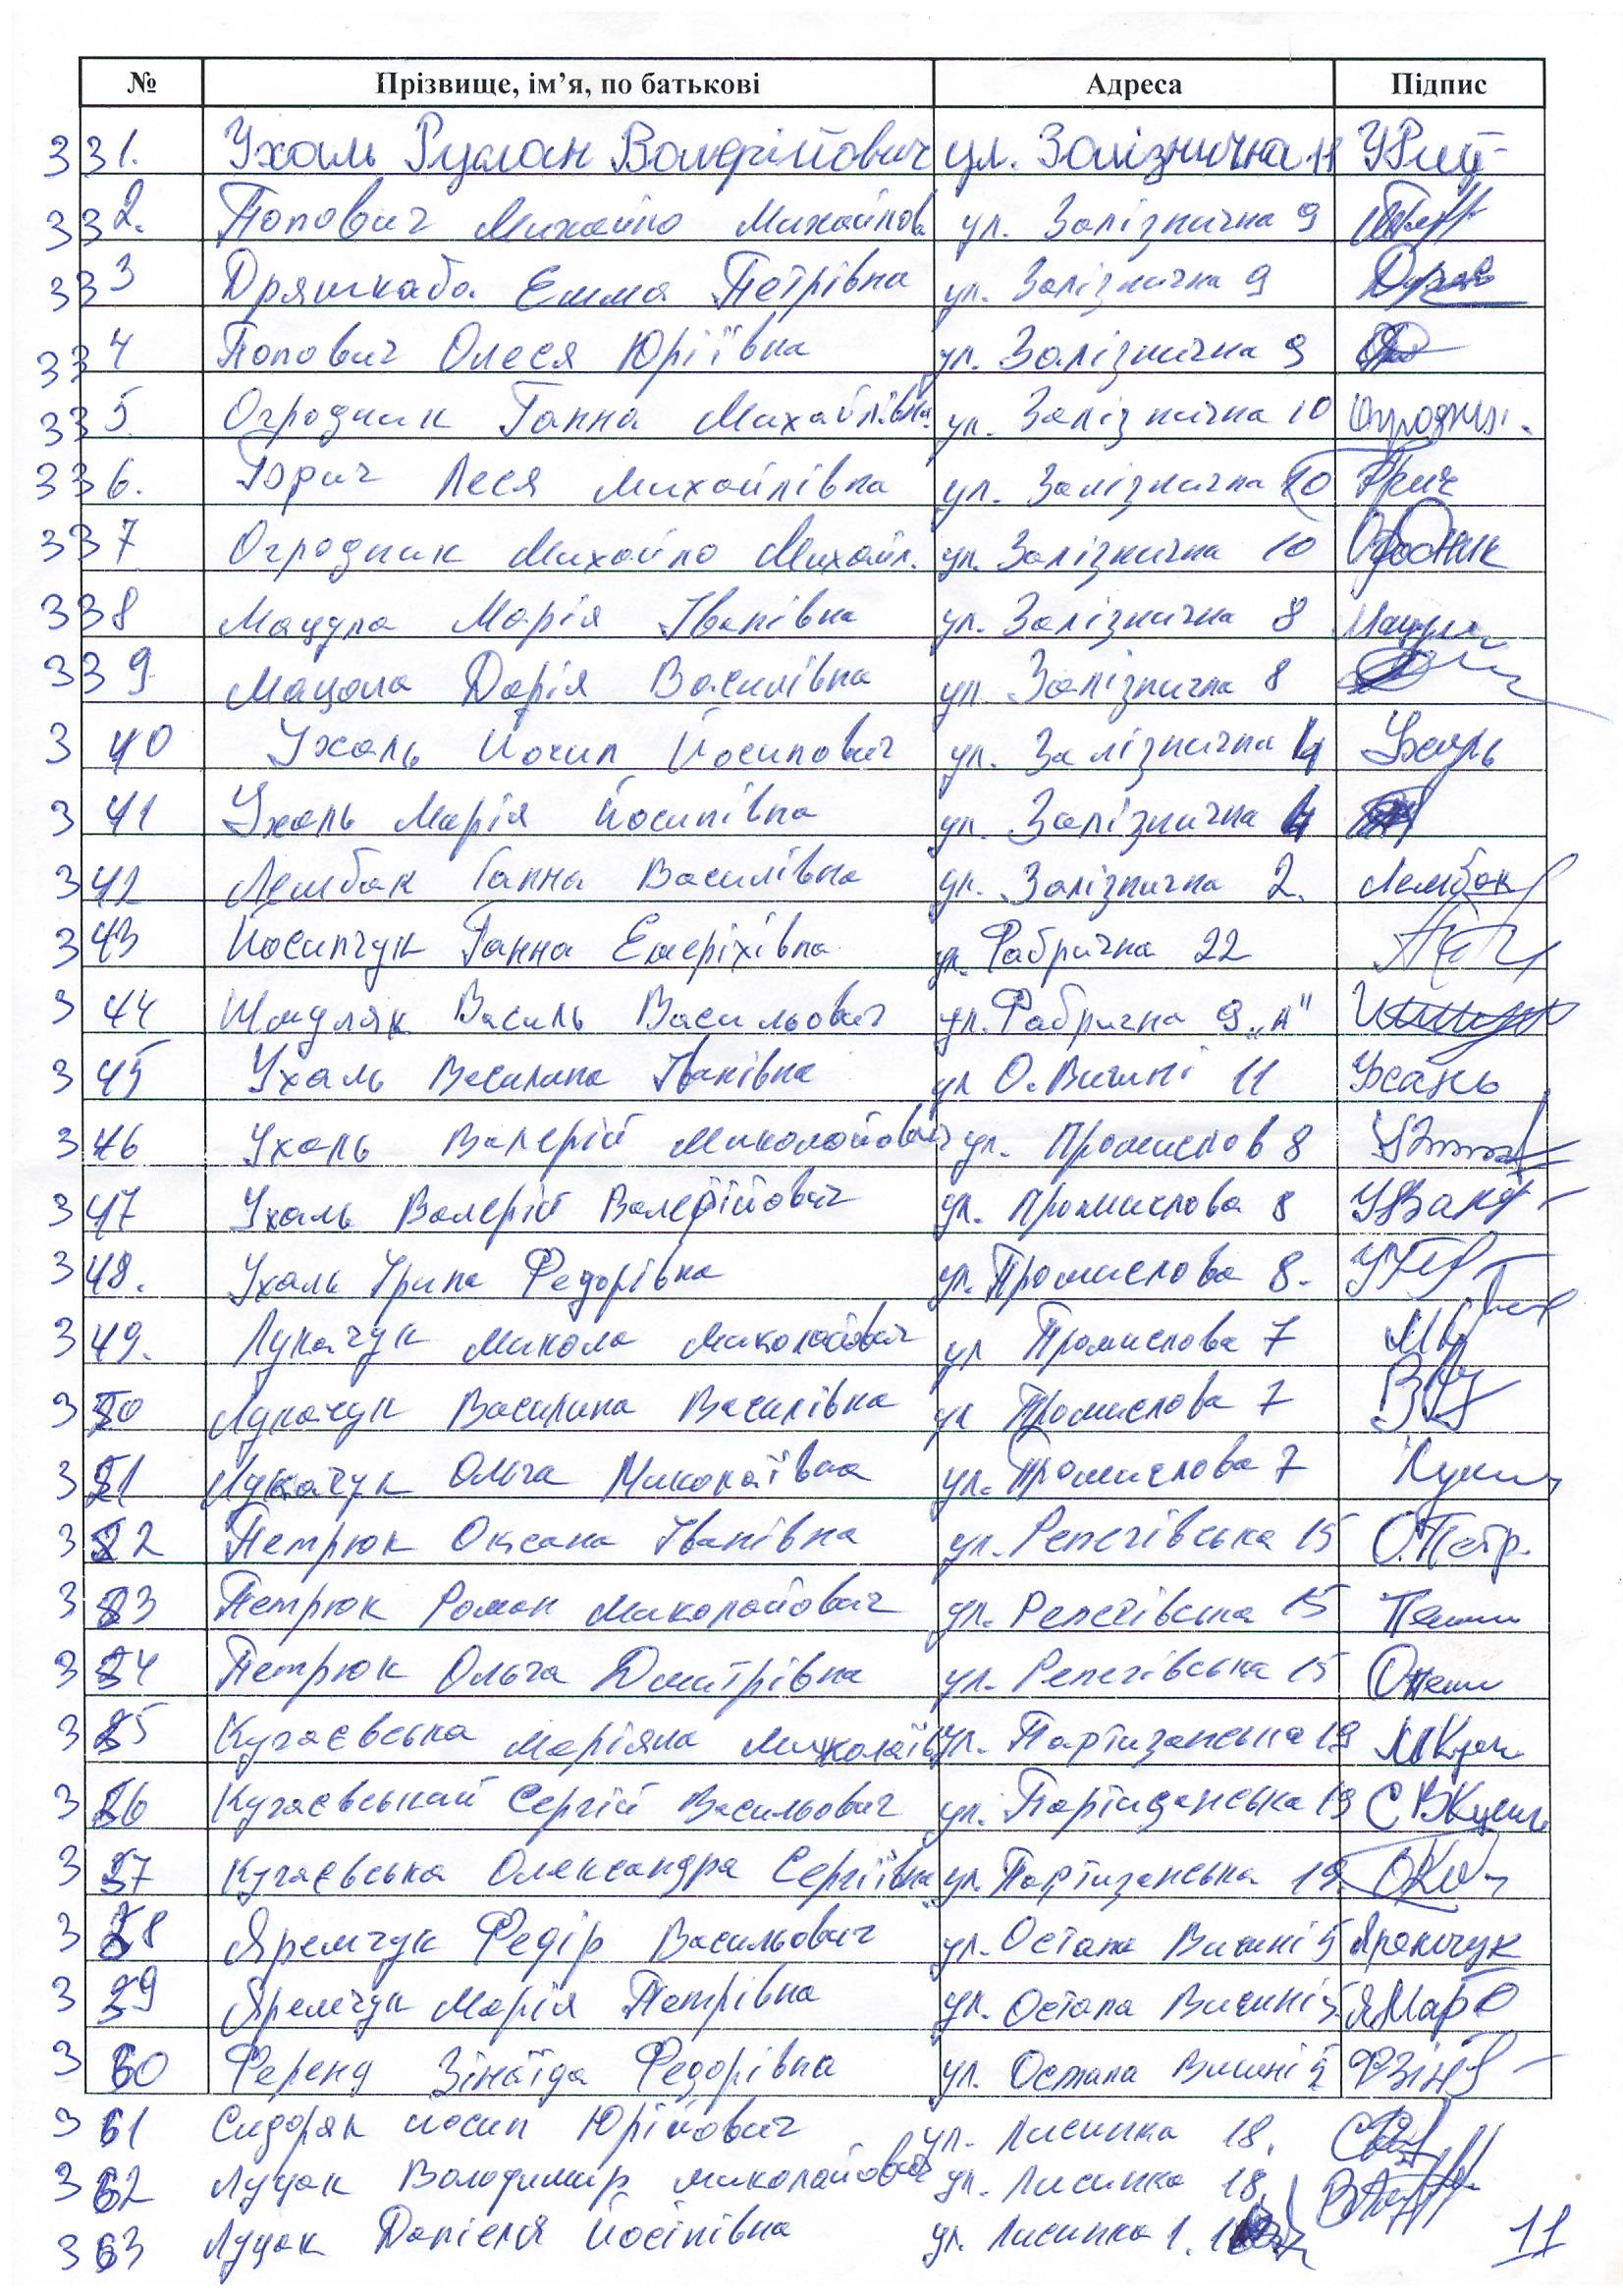 № Прізвище, ім'я, по батькові Адреса Підпис
331. Ухаль Руслан Валерійович ул. Залізнична 11
332. Попович Михайло Михайлов. ул. Залізнична 9
333 Дряшкаба Емма Петрівна ул. Залізнична 9
334 Попович Олеся Юріївна ул. Залізнична 9
335 Огродник Ганна Михайлівна. ул. Залізнична 10
336. Леся Михайлівна ул. Залізнична 10
337 Огродник Михайло Михайл. ул. Залізнична 10 Огродник
338 Мацула Марія Іванівна ул. Залізнична 8
339 Мацола Дарія Василівна ул. Залізнична 8
340 Ухаль Йосип Йосипович ул. Залізнична 4 Ухаль
341 Ухаль Марія Йосипівна ул. Залізнична 4
342 Лембак Ганна Василівна ул. Залізнична 2. Лембак
343 Йосипчук Ганна Емеріхівна ул. Фабрична 22
344 Шмуляк Василь Васильович ул. Фабрична 9 „А"
345 Ухаль Василина Іванівна ул О. Вишні 11 Ухаль
346 Ухаль Валерій Миколайович ул. Промислов 8
347 Ухаль Валерій Валерійович ул. Промислова 8
348. Ухаль Ірина Федорівна ул. Промислова 8.
349. Лукачук Микола Миколайович ул Промислова 7
350 Лукачук Василина Василівна ул Промислова 7
351 Лукачук Ольга Миколаївна ул. Промислова 7
352 Петрюк Оксана Іванівна ул. Репегівська 15 О.Петр.
353 Петрюк Роман Миколайович ул. Репегівська 15
354 Петрюк Ольга Дмитрівна ул. Репегівська 15
355 Кугаєвська Маріяна Миколаїв ул. Партизанська 19
356 Кугаєвський Сергій Васильович ул. Партизанська 19
357 Кугаєвська Олександра Сергіївна ул. Партизанська 19.
358 Яремчук Федір Васильович ул. Остапа Вишні 5 Яремчук
359 Яремчук Марія Петрівна ул. Остапа Вишні 5
360 Ференц Зінаїда Федорівна ул. Остапа Вишні 5
361 Сидоряк Йосип Юрійович ул. Лисинка 18.
362 Луцак Володимир Миколайович ул. Лисинка 18
363 Луцак Даніеля Йосипівна ул. Лисинка
11